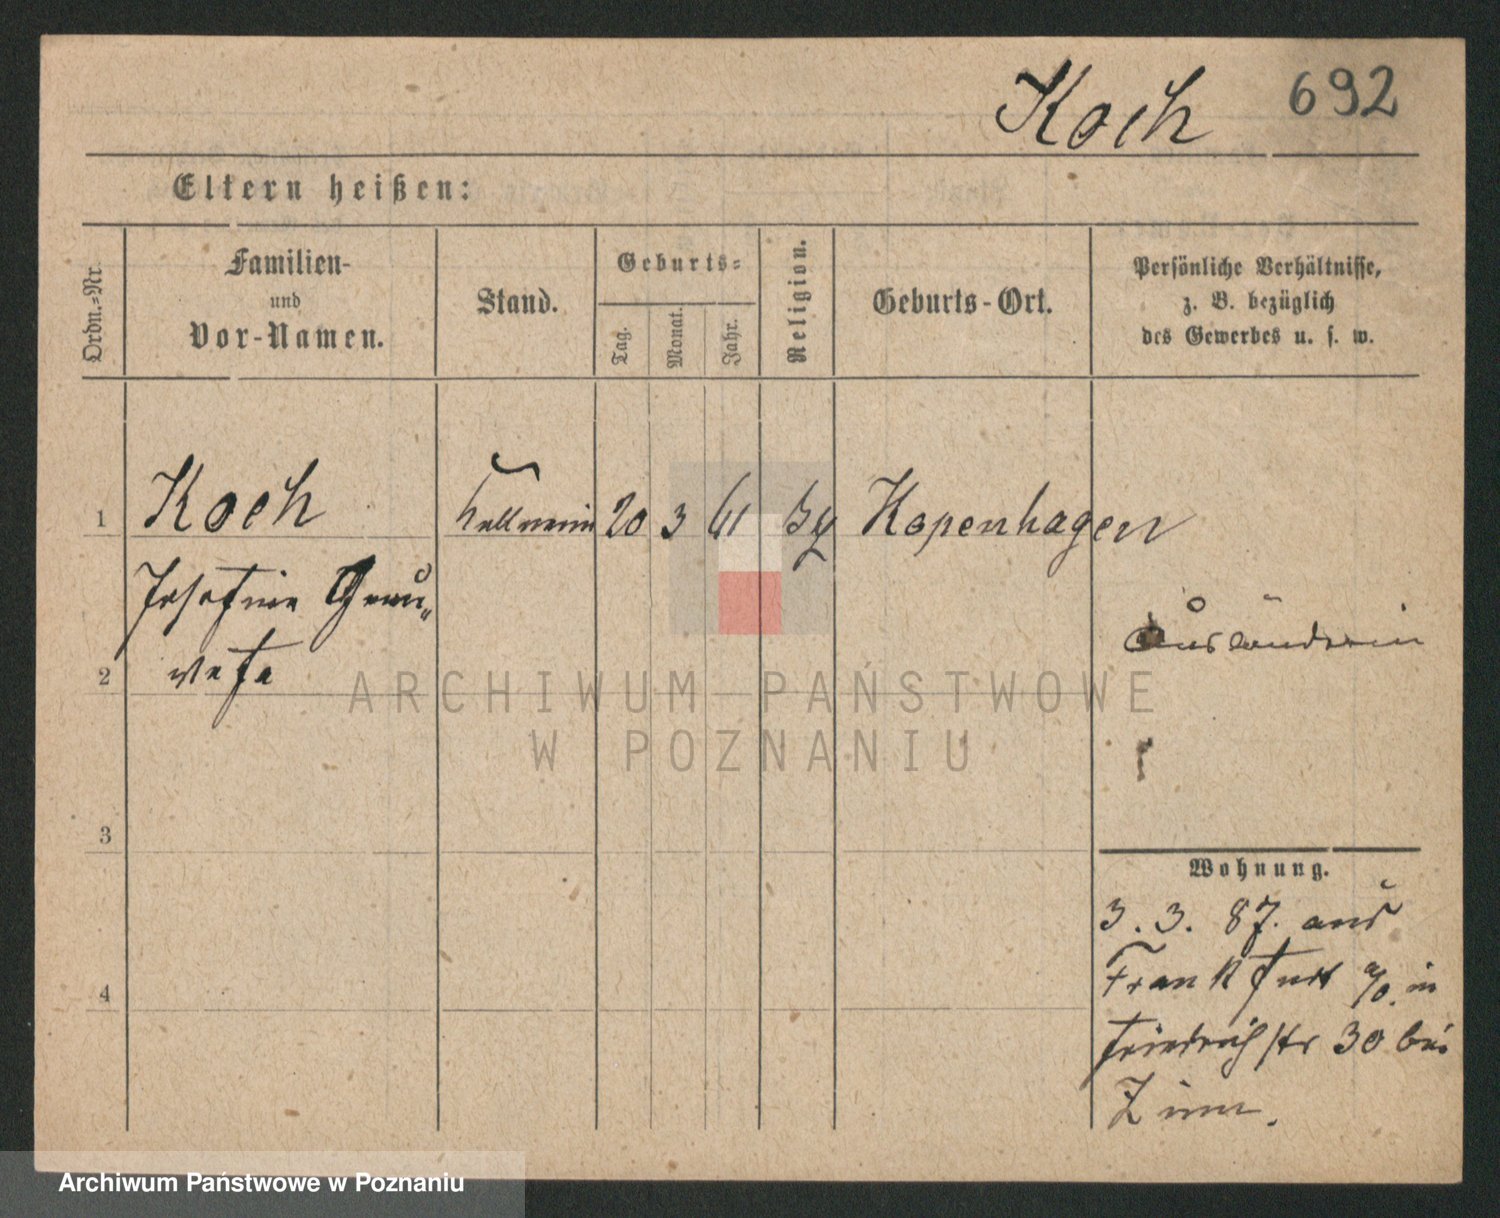 Koch 692
Eltern heißen:
Ordn.-Nr.
Familien-
und
Vor-Namen.
Stand.
Geburts-
Tag.
Monat.
Jahr.
Religion.
Geburts-Ort.
Persönliche Verhältnisse,
z. B. bezüglich
des Gewerbes u. s. w.
1 Koch Kellnerin 20 3 61 Kopenhagen
Josefine Genu-
2 wefa
Ausländerin
ARCHIWUM PAŃSTWOWE
W POZNANIU
3
Wohnung.
3. 3. 87. aus
4 Frankfurt a/O. in
Friedrichstr 30 bei
Archiwum Państwowe w Poznaniu